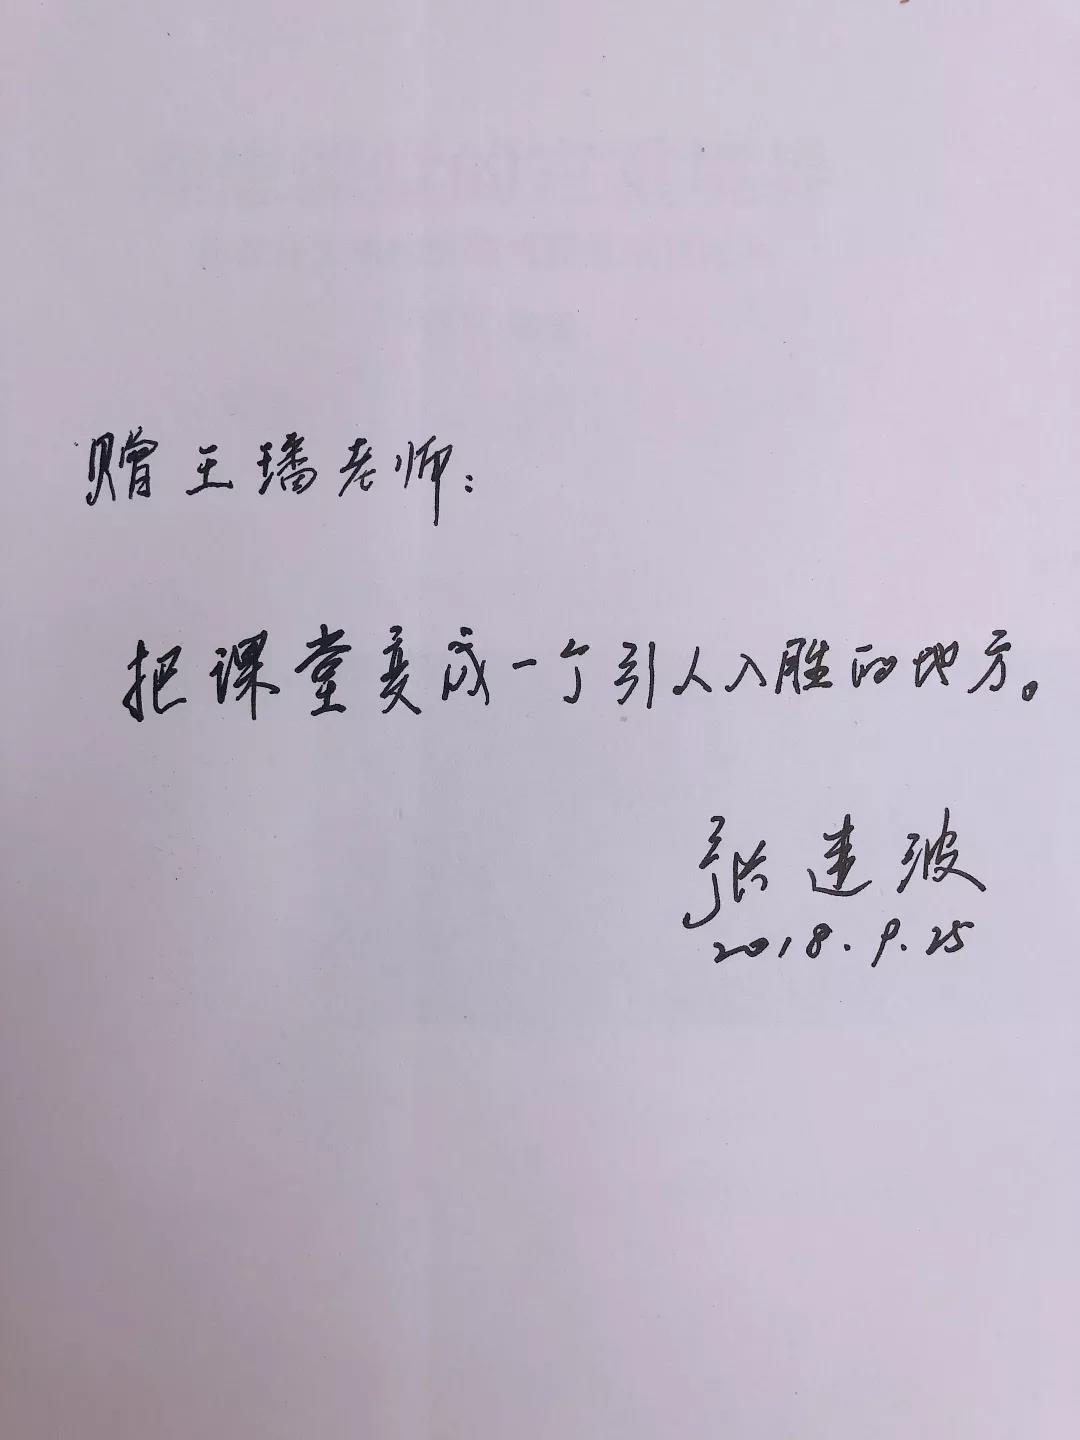 赠王璠老师：
把课堂变成一个引人入胜的地方。
张连波
2018.9.25